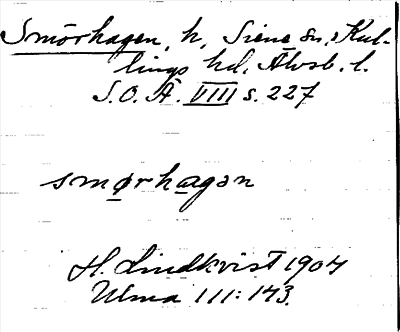 Smörhagen, h, Siene sn, Kul-
lings hd, Älvsb. l.
S.O.Ä. VIII s. 227
smørhagən
H. Lindkvist 1907
Ulma 111:143.